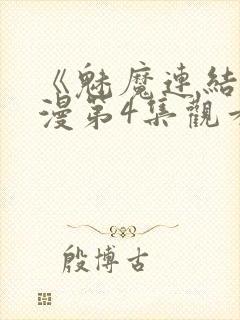 《魅魔連結
漫第4集觀看
殷博古